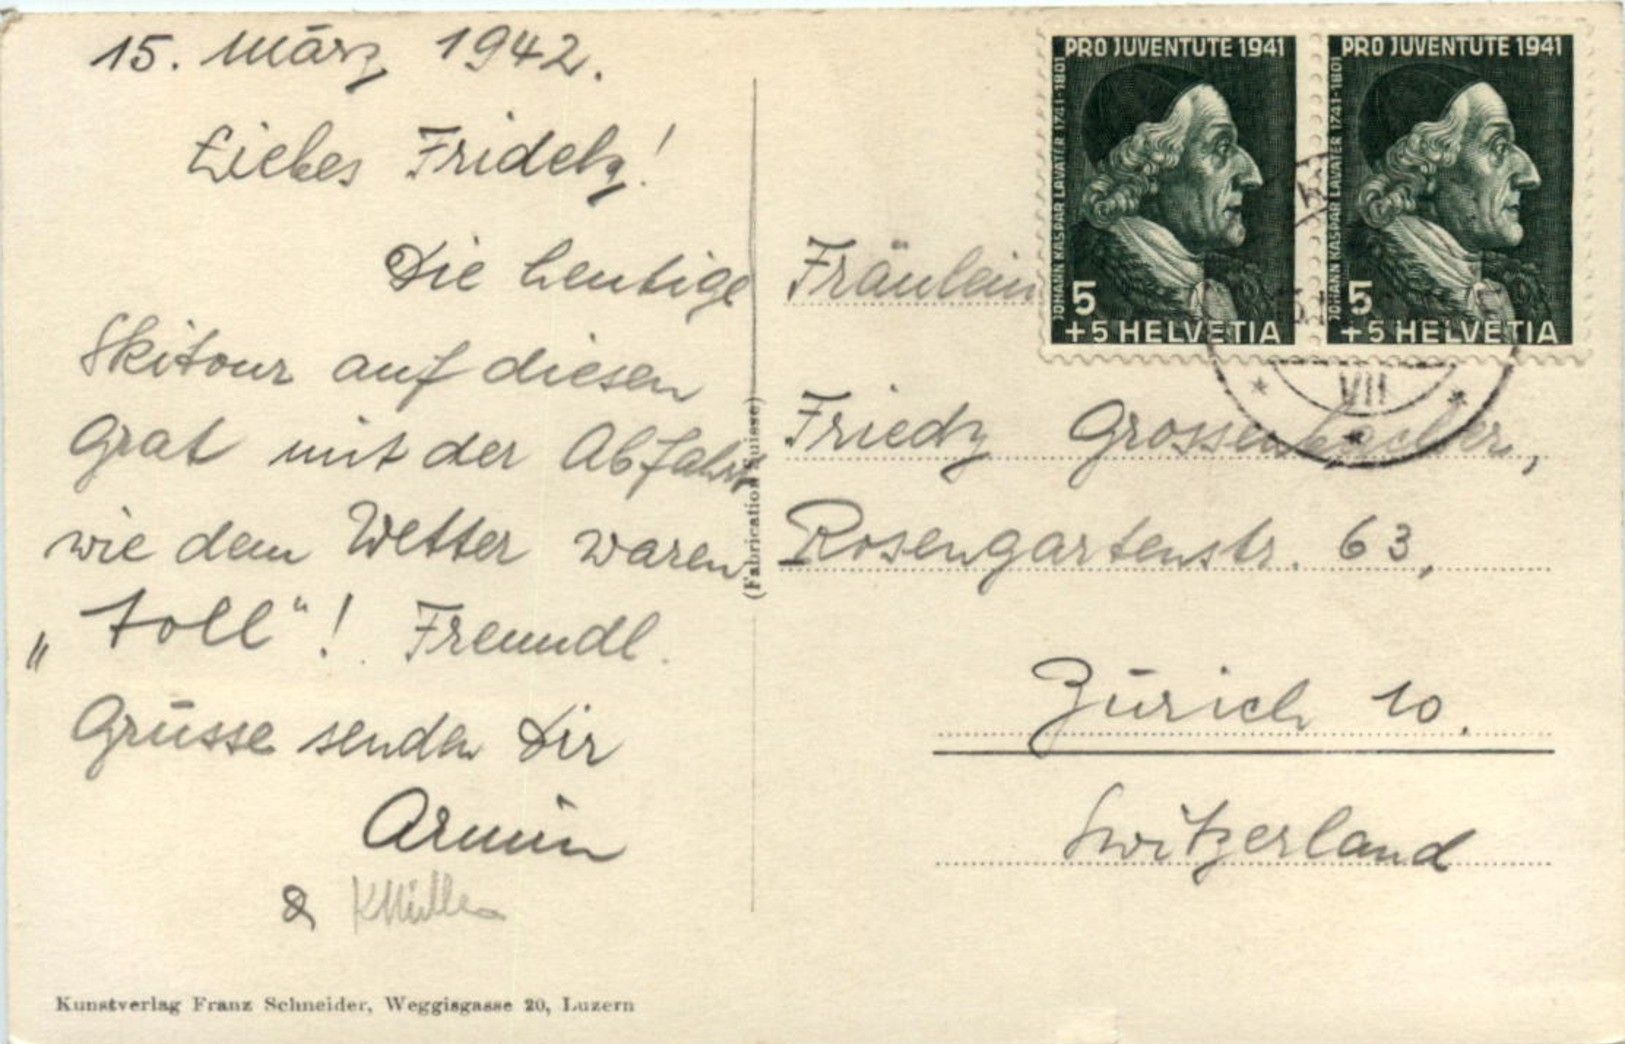 15. März 1942.
Liebes Fridely!
Die heutige
Skitour auf diesen
Grat mit der Abfahrt
wie dem Wetter waren
„toll“! Freundl.
Grüsse senden Dir
Armin
& KMüller
Kunstverlag Franz Schneider, Weggisgasse 20, Luzern
(Fabrication Suisse)
PRO JUVENTUTE 1941
JOHANN KASPAR LAVATER 1741-1801
5
+5 HELVETIA
PRO JUVENTUTE 1941
JOHANN KASPAR LAVATER 1741-1801
5
+5 HELVETIA
VII
Fräulein
Friedy Grossenbacher,
Rosengartenstr. 63,
Zürich 10.
Switzerland